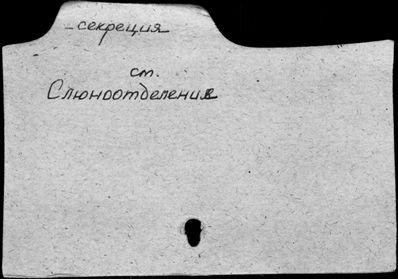 -секреция
см.
Слюноотделение